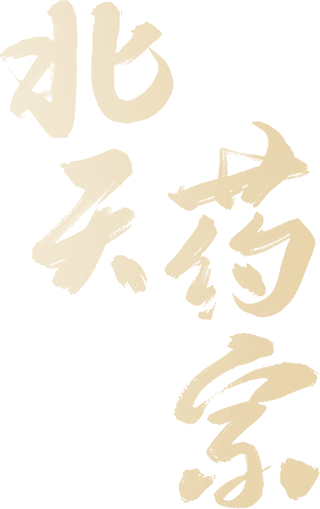 北天
药宗